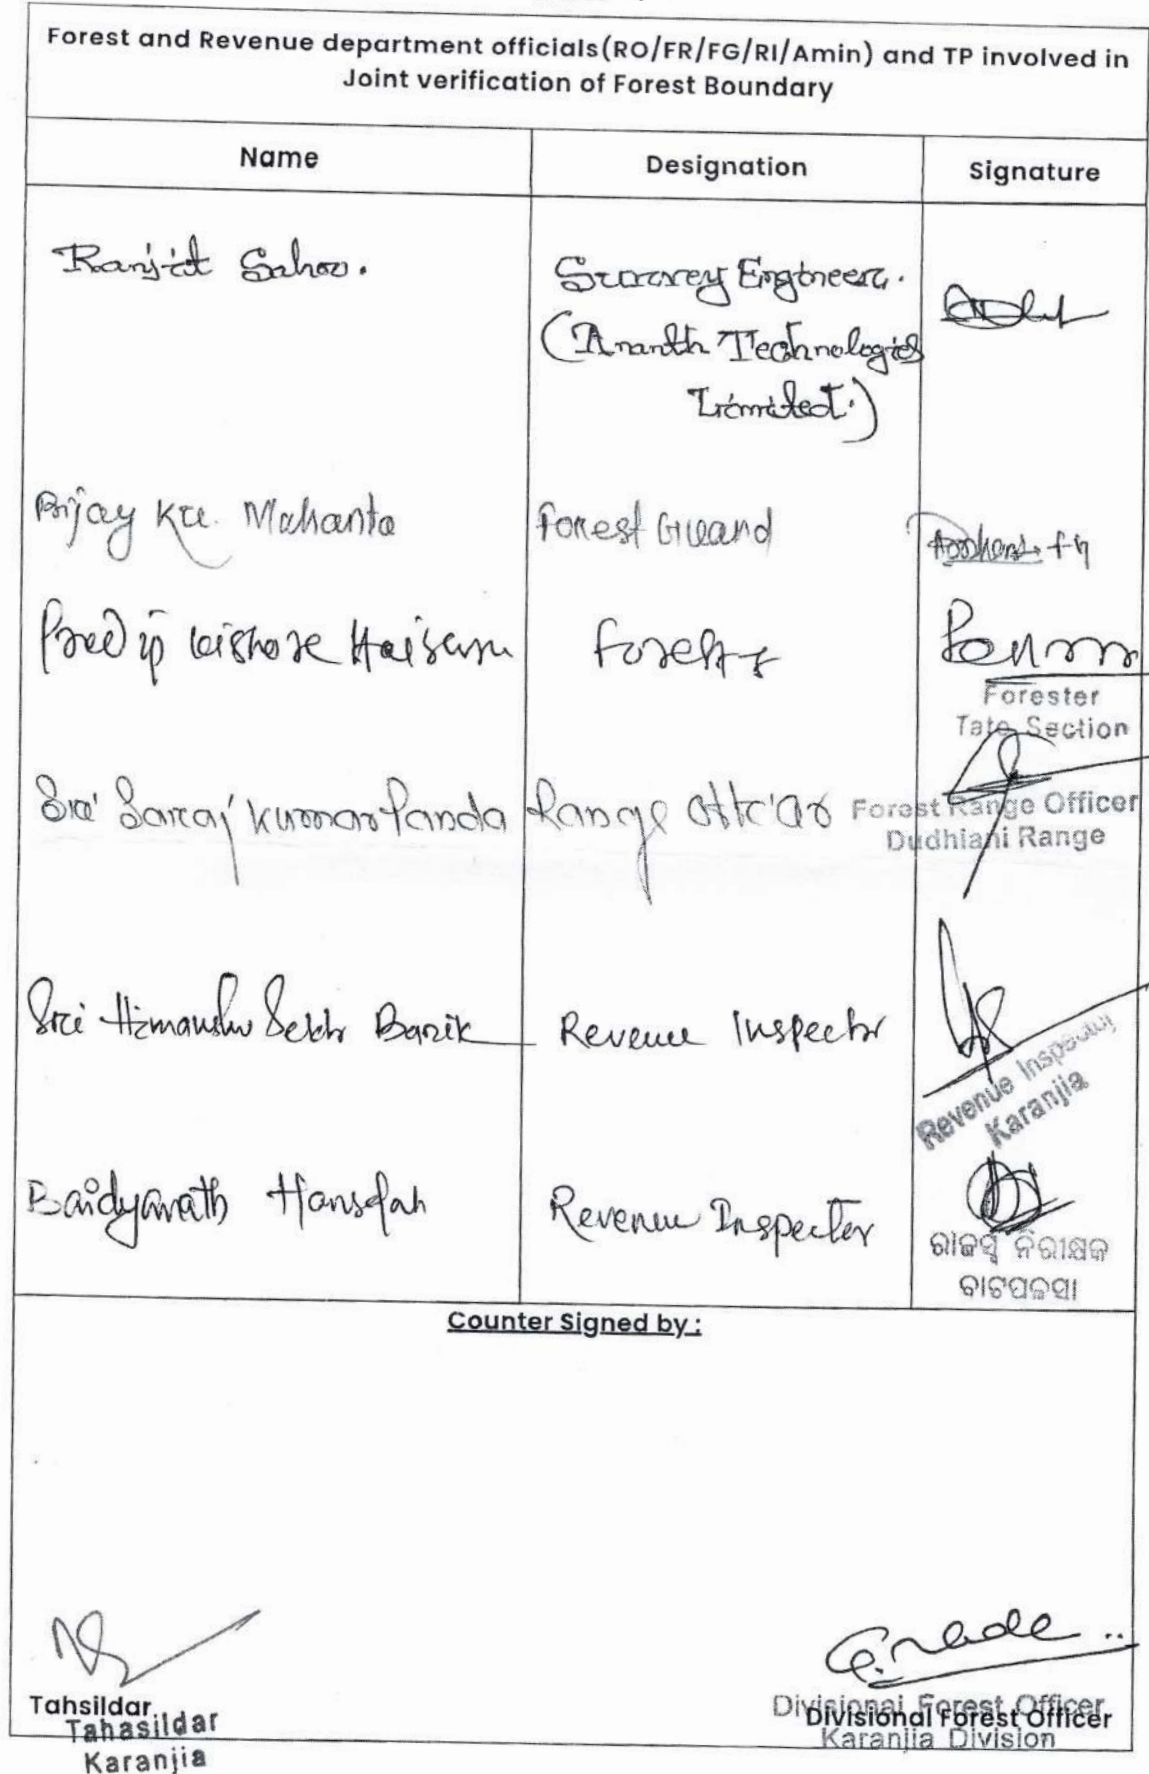 Forest and Revenue department officials(RO/FR/FG/RI/Amin) and TP involved in
Joint verification of Forest Boundary
Name Designation Signature
Ranjit Sahoo. Survey Engineer.
(Ananth Technologies
Limited.)
Bijay Ku. Mahanta Forest Guard
Kishore Forester
Forester
Tato Section
Sri Saroj Kumar Panda Range Officer
Forest Range Officer
Dudhiani Range
Sri Himanshu Sekhr Barik Revenue Inspector
Revenue Inspector
Karanjia
Baidyanath Hansdah Revenue Inspector
ରାଜସ୍ୱ ନିରୀକ୍ଷକ
Counter Signed by :
Tahsildar
Tahasildar
Karanjia
Divisional Forest Officer
Divisional Forest Officer
Karanjia Division